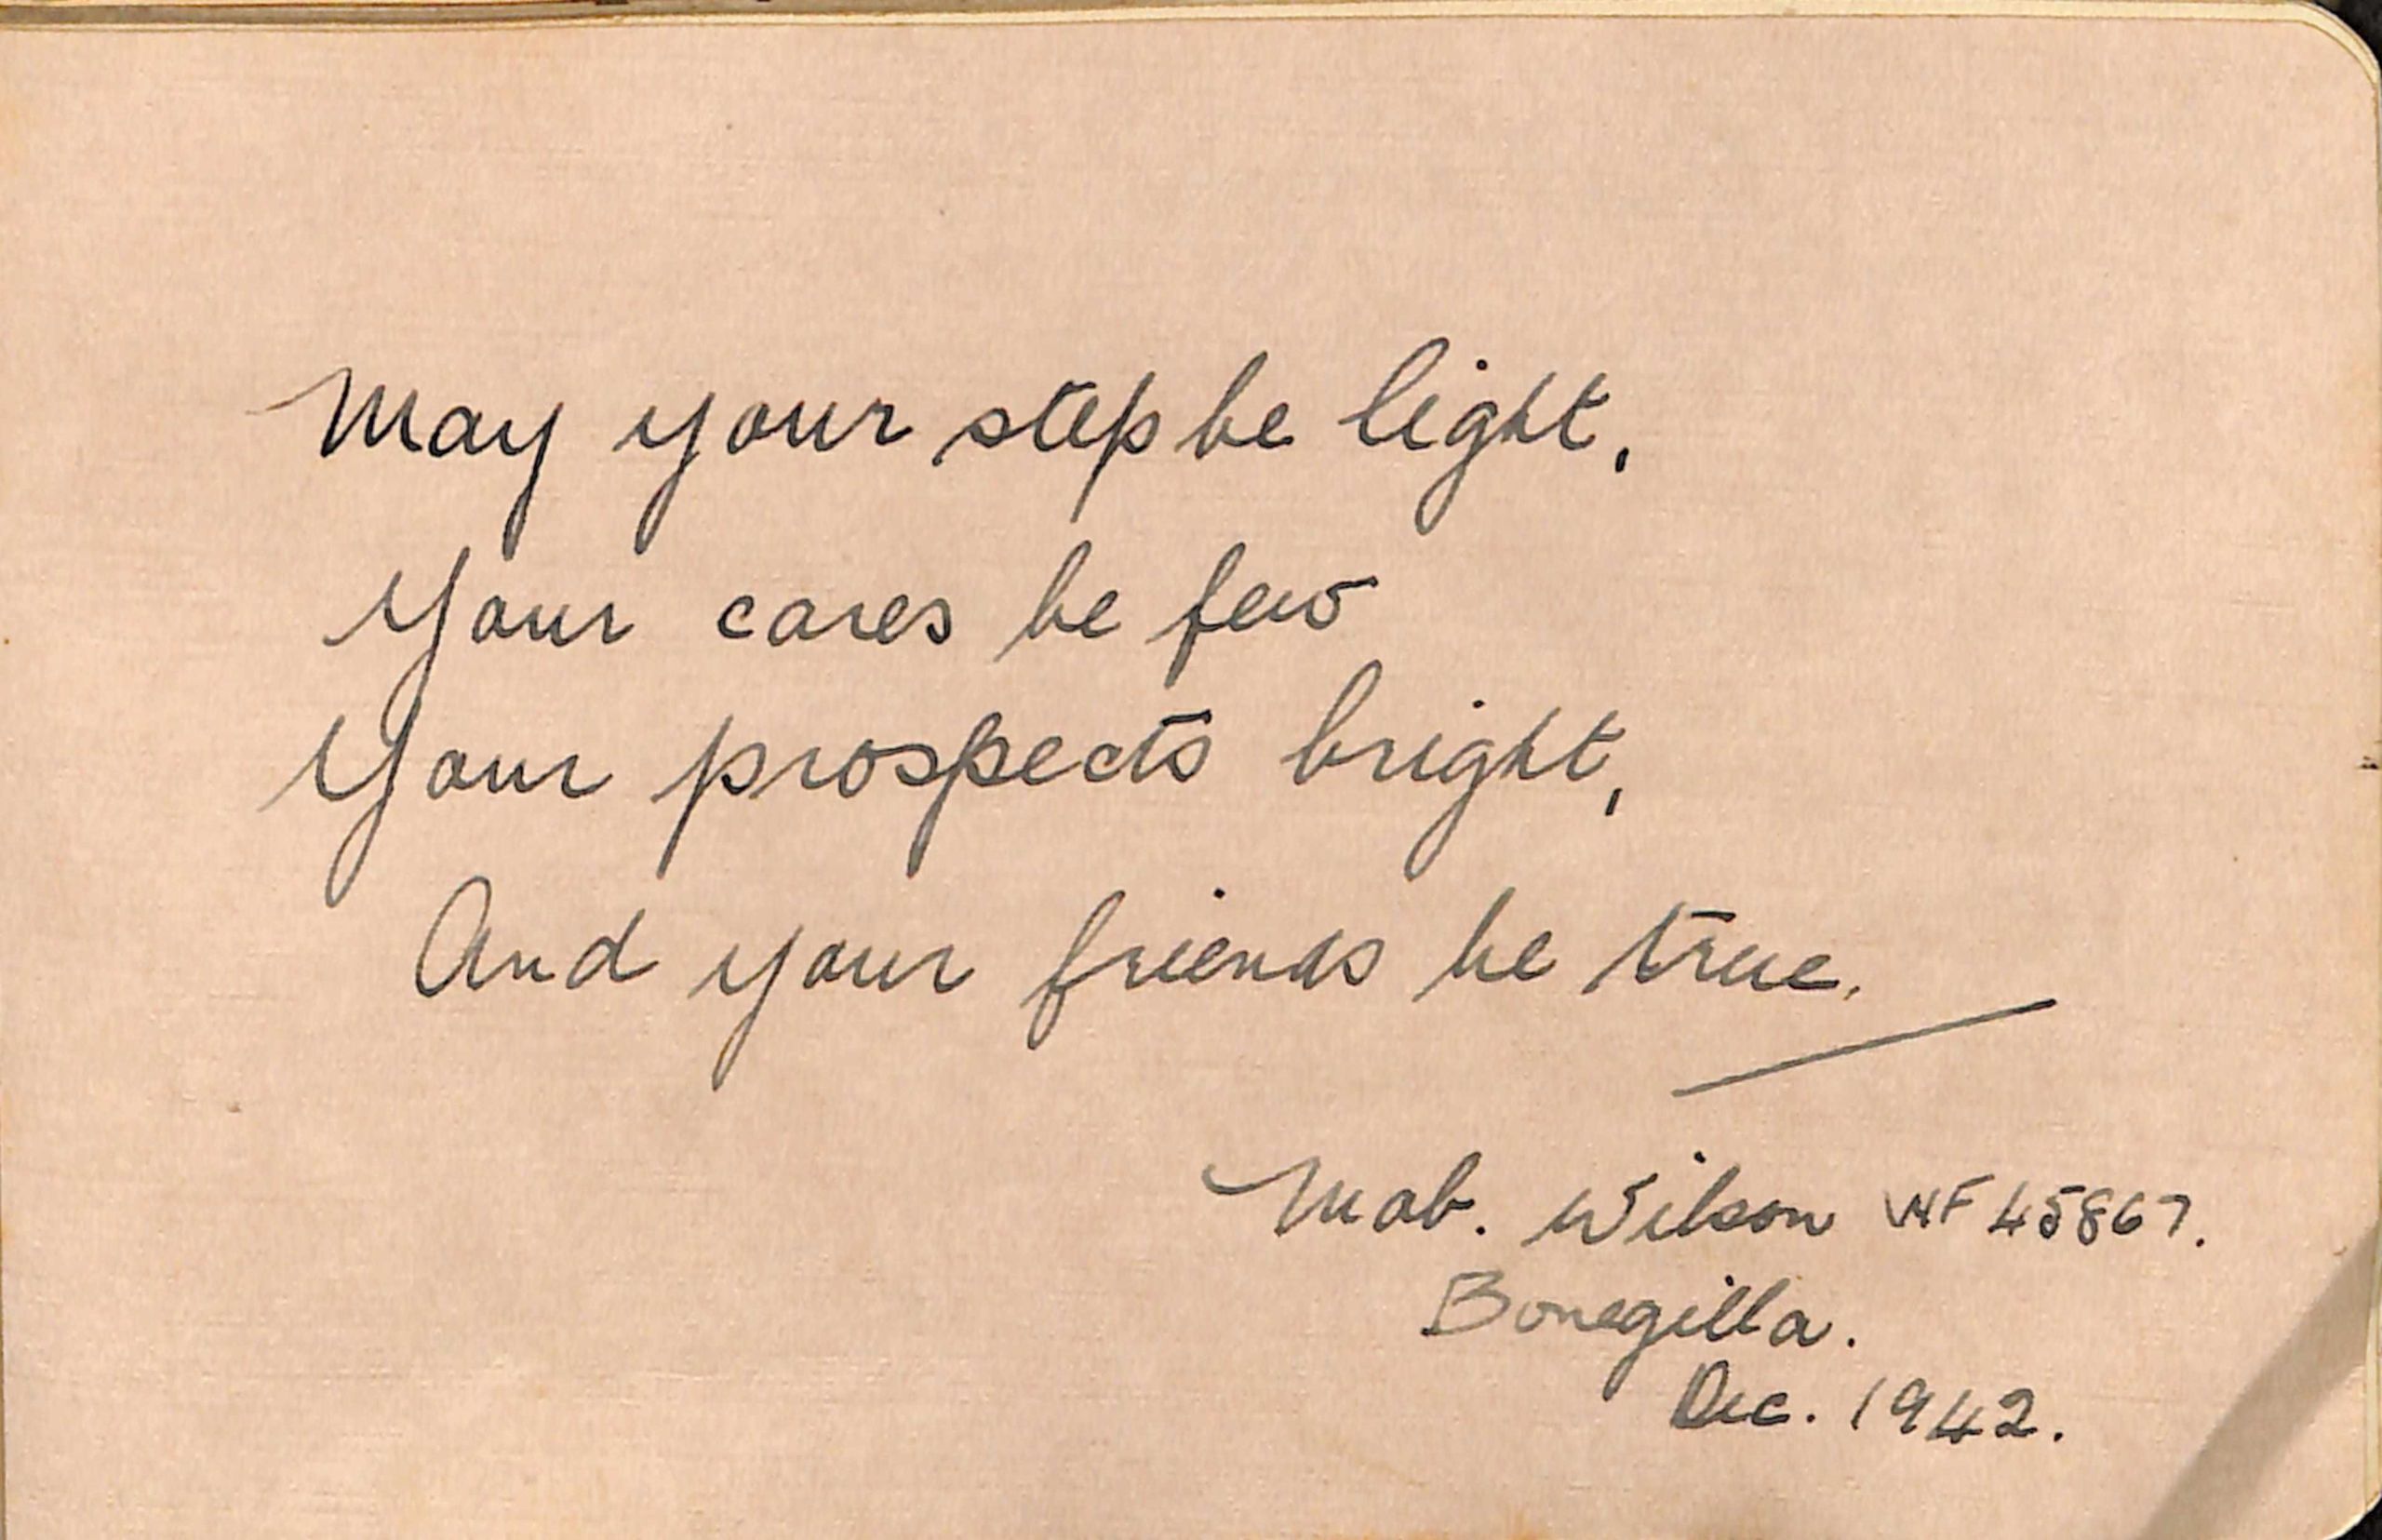 May your step be light,
Your cares be few
Your prospects bright,
And your friends be true.
Mab. Wilson WF 45867.
Bonegilla.
Dec. 1942.